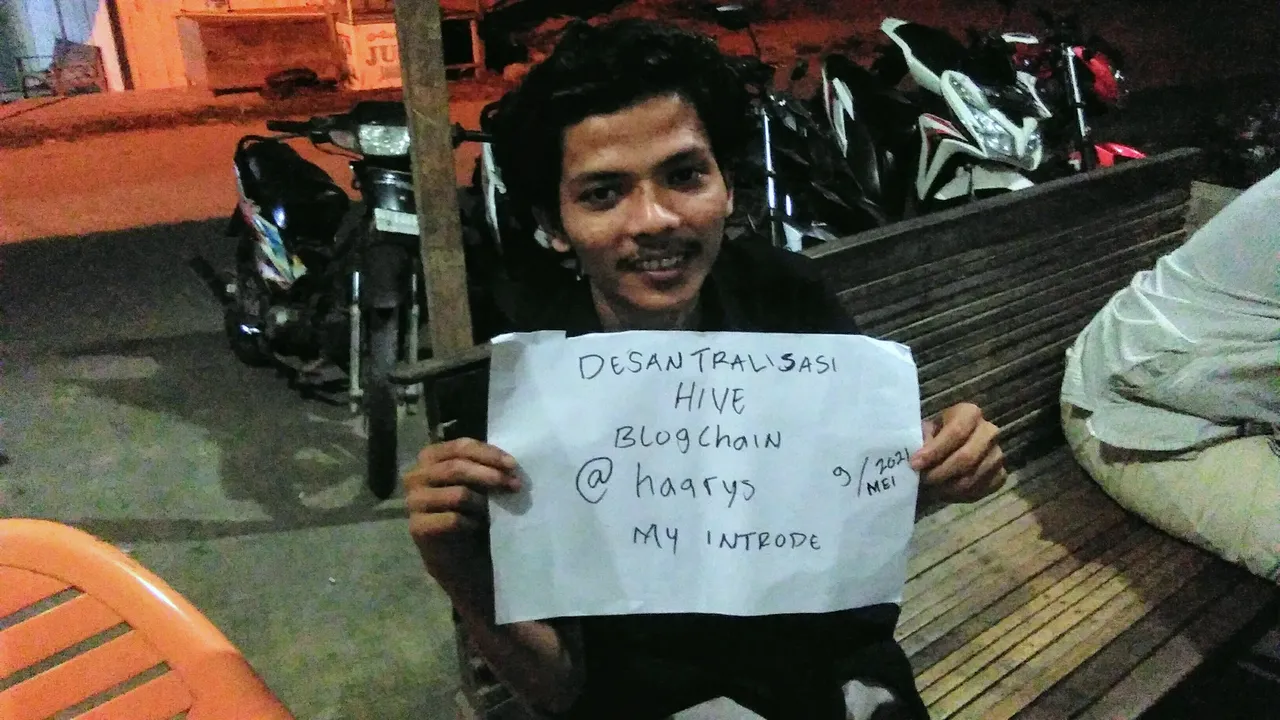 JU
DESANTRALISASI
HIVE
BLOgCHAIN
@ haarys
9/2021
MEI
MY INTRODE